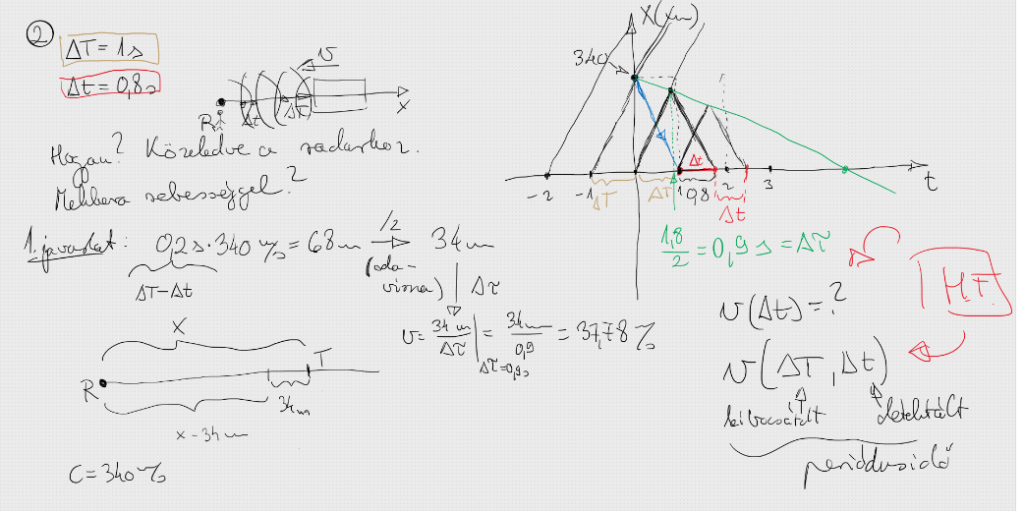 ②
ΔT = 1s
Δt = 0,8s
v
R
Δt
ΔT
x
Hogyan? Közeledve a radarhoz.
Mekkora sebességgel?
1. javaslat: 0,2 s · 340 m/s = 68 m /2 → 34 m
ΔT - Δt
(oda-vissza)
Δτ
v = 34 m / Δτ |Δτ=0,9s = 34 m / 0,9 = 37,78 m/s
x
R
T
34 m
x - 34 m
C = 340 m/s
X(m)
340
-2 -1 1 0,8 2 3 t
ΔT ΔT Δt Δt
1,8 / 2 = 0,9 s = Δτ
H.F.
v(Δt) = ?
v(ΔT, Δt)
kibocsátott detektált
periódusidő